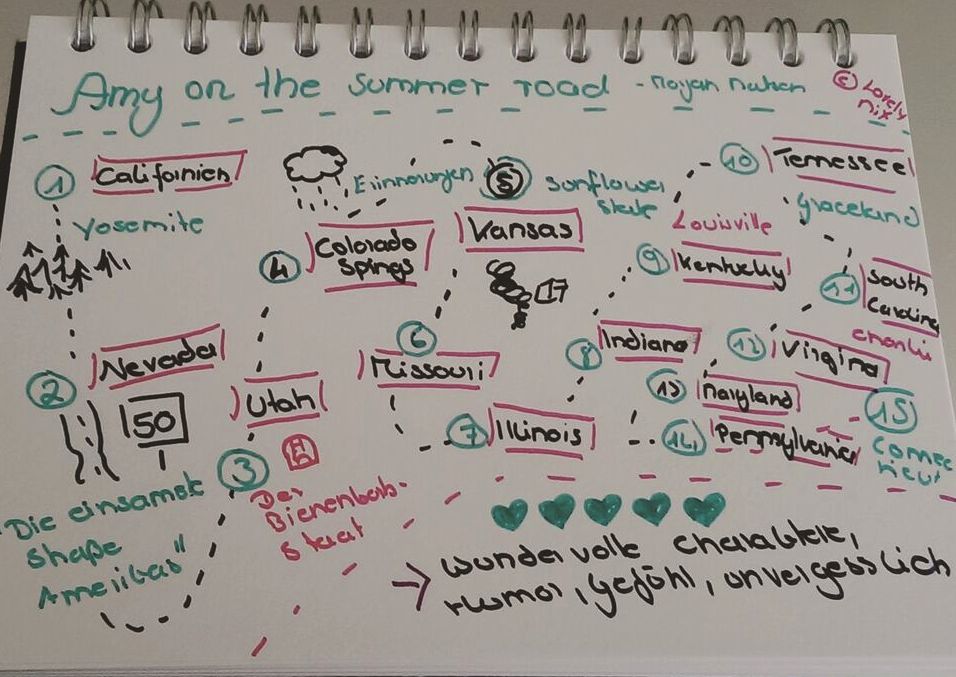 Amy on the summer road - Mogan Matson
© Lovely
Mix
1 Californien
Yosemite
2 Nevada
50
"Die einsamste
Straße
Amerikas"
3
Utah
Der
Bienenkorb-
staat
4 Colorado
Springs
Erinnerungen
5 Sunflower
State
Kansas
17
6
Missouri
7 Illinois
8 Indiana
Louisville
9 Kentucky
10 Tennessee
Graceland
11 South
Carolina
Charlie
12 Virginia
13 Maryland
14 Pennsylvania
15
Connec
ticut
→ wundervolle Charaktere,
Humor, Gefühl, unvergesslich